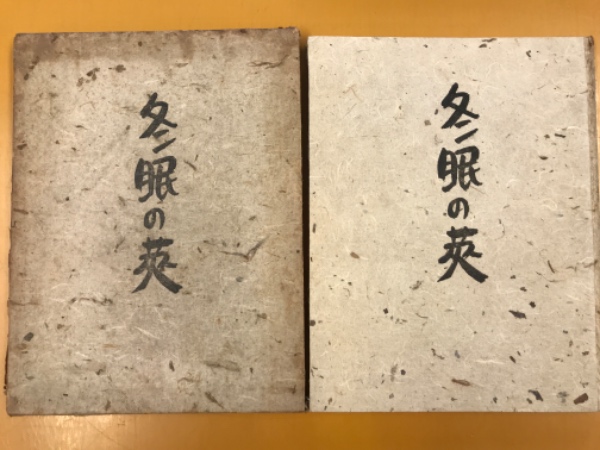 冬眠の莢
冬眠の莢